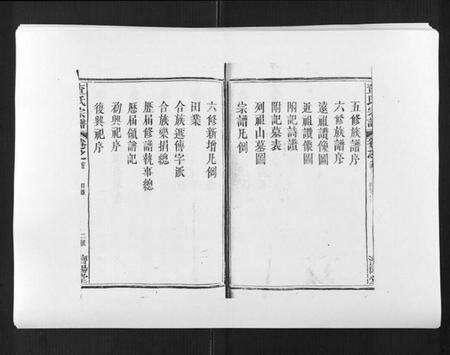 五修族譜序
六修族譜序
遠祖讚像圖
近祖讚像圖
附記詩讚
附記墓表
列祖山墓圖
宗譜凡例
六修新增凡例
田業
合族遞傳字派
合族樂捐總
歷屆修譜執事總
歷屆領譜記
初興祀序
後興祀序
氏宗譜